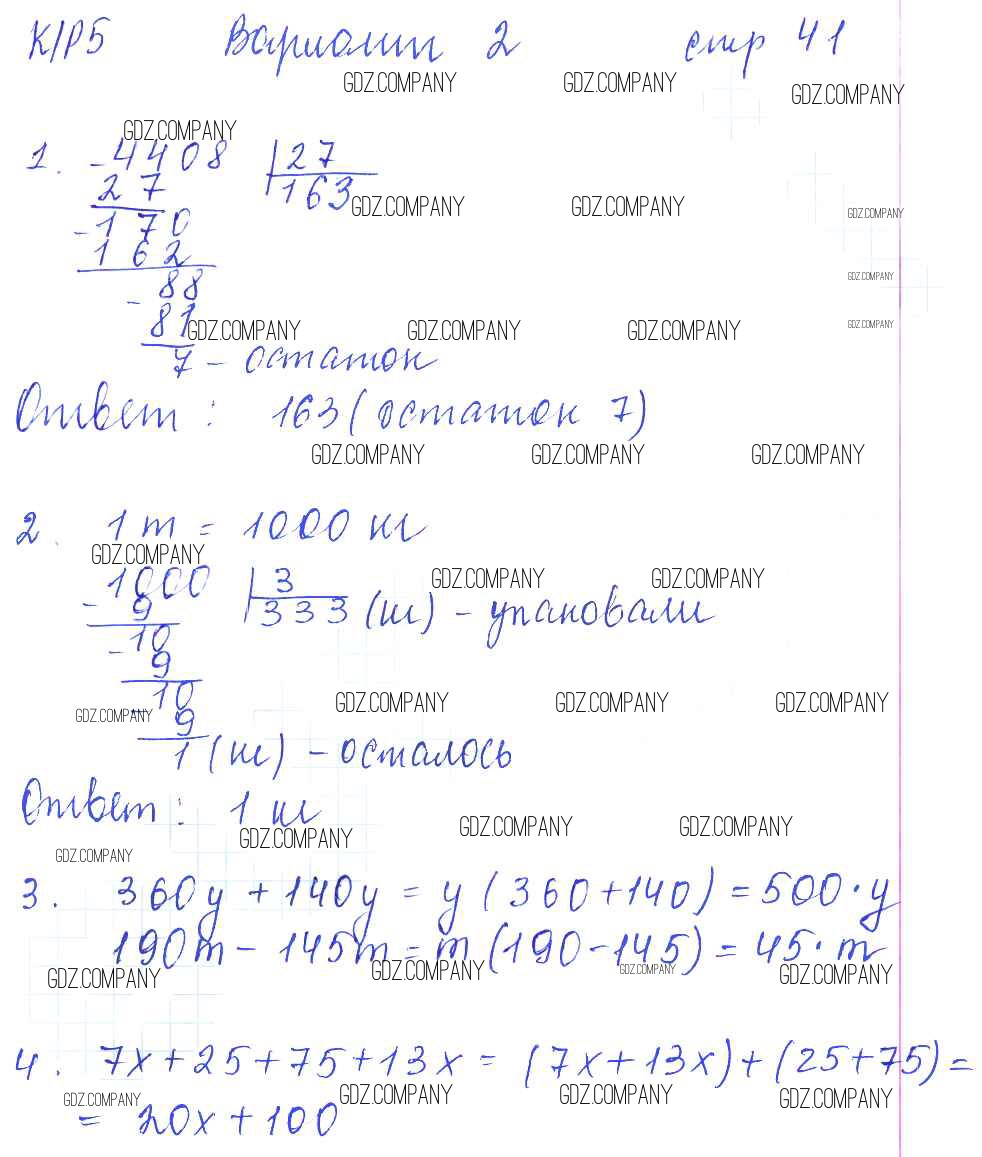 К/Р5 Вариант 2 стр 41
GDZ.COMPANY GDZ.COMPANY GDZ.COMPANY
GDZ.COMPANY
1. - 4408 | 27
27 163
GDZ.COMPANY GDZ.COMPANY GDZ.COMPANY
- 170
162
GDZ.COMPANY
- 88
81
GDZ.COMPANY GDZ.COMPANY GDZ.COMPANY GDZ.COMPANY
7 - остаток
Ответ: 163 (остаток 7)
GDZ.COMPANY GDZ.COMPANY GDZ.COMPANY
2. 1 т = 1000 кг
GDZ.COMPANY
- 1000 | 3
GDZ.COMPANY GDZ.COMPANY
9 333 (кг) - упаковали
- 10
9
- 10
GDZ.COMPANY GDZ.COMPANY GDZ.COMPANY GDZ.COMPANY
9
1 (кг) - осталось
Ответ: 1 кг
GDZ.COMPANY GDZ.COMPANY GDZ.COMPANY
GDZ.COMPANY
3. 360y + 140y = y (360 + 140) = 500 · y
190m - 145m = m (190 - 145) = 45 · m
GDZ.COMPANY GDZ.COMPANY GDZ.COMPANY GDZ.COMPANY
4. 7x + 25 + 75 + 13x = (7x + 13x) + (25 + 75) =
GDZ.COMPANY GDZ.COMPANY GDZ.COMPANY GDZ.COMPANY
= 20x + 100